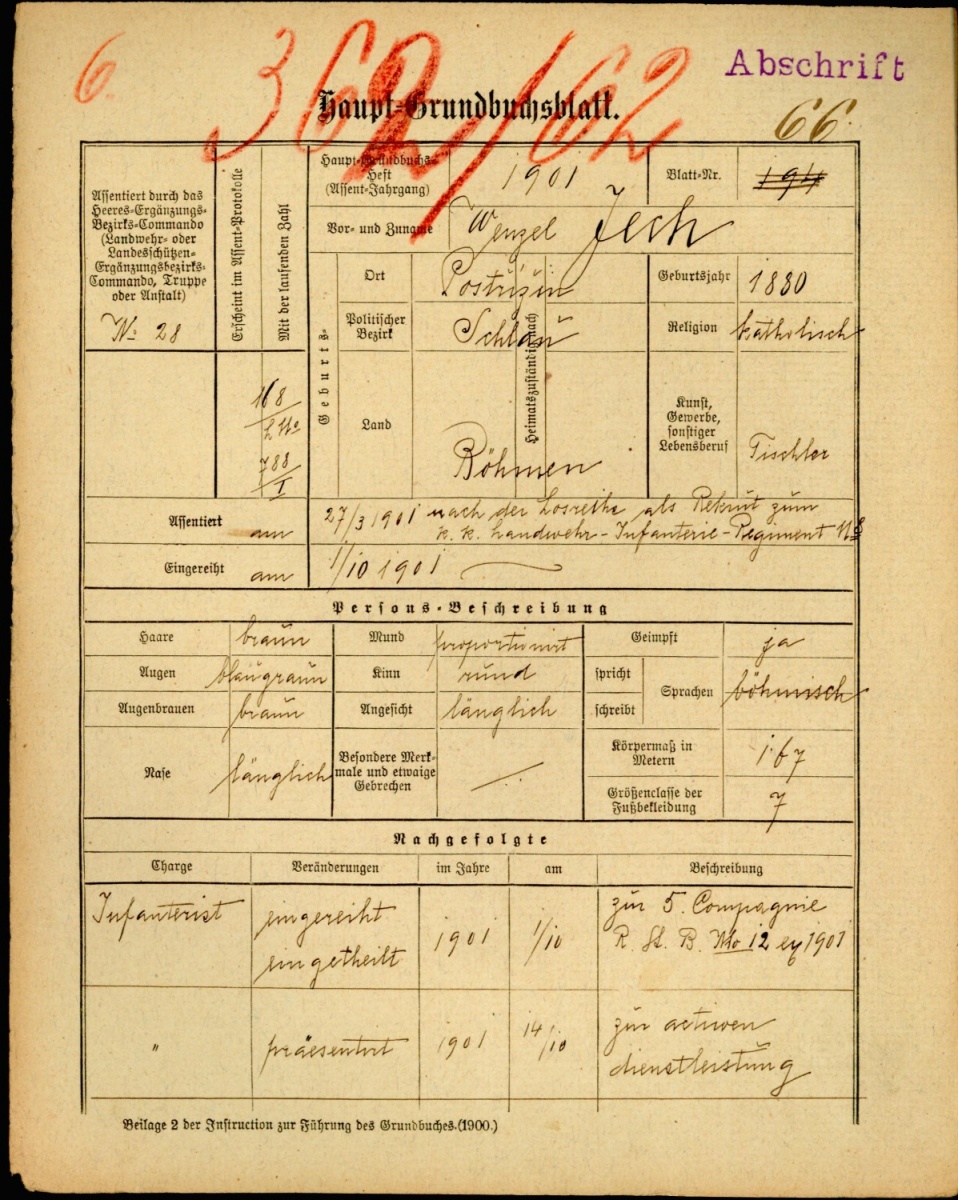 6.
362/62
Abschrift
Haupt-Grundbuchsblatt.
66.
Assentiert durch das
Heeres-Ergänzungs-
Bezirks-Commando
(Landwehr- oder
Landesschützen-
Ergänzungsbezirks-
Commando, Truppe
oder Anstalt)
No 28
Erscheint im Assent-Protokolle
Mit der laufenden Zahl
168
788
I
Haupt-Grundbuchs-
Heft
(Assent-Jahrgang)
1901
Blatt-Nr.
194
Vor- und Zuname
Wenzel Jech
Geburts-
Ort
Postřižin
Geburtsjahr
1880
Politischer
Bezirk
Schlan
Religion
katholisch
Land
Heimatszuständig nach
Böhmen
Kunst,
Gewerbe,
sonstiger
Lebensberuf
Tischler
Assentiert
am
27/3 1901 nach der Losreihe als Rekrut zum
k. k. Landwehr-Infanterie-Regiment No 8
Eingereiht
am
1/10 1901
Persons-Beschreibung
Haare
braun
Mund
proportionirt
Geimpft
ja
Augen
blaugraun
Kinn
rund
spricht
schreibt
Sprachen
böhmisch
Augenbrauen
braun
Angesicht
länglich
Nase
länglich
Besondere Merk-
male und etwaige
Gebrechen
Körpermaß in
Metern
1·67
Größenclasse der
Fußbekleidung
7
Nachgefolgte
Charge
Veränderungen
im Jahre
am
Beschreibung
Infanterist
eingereiht
eingetheilt
1901
1/10
zur 5. Compagnie
R. St. B. No 12 ex 1901
"
präesentirt
1901
14/10
zur activen
dienstleistung
Beilage 2 der Instruction zur Führung des Grundbuches.(1900.)